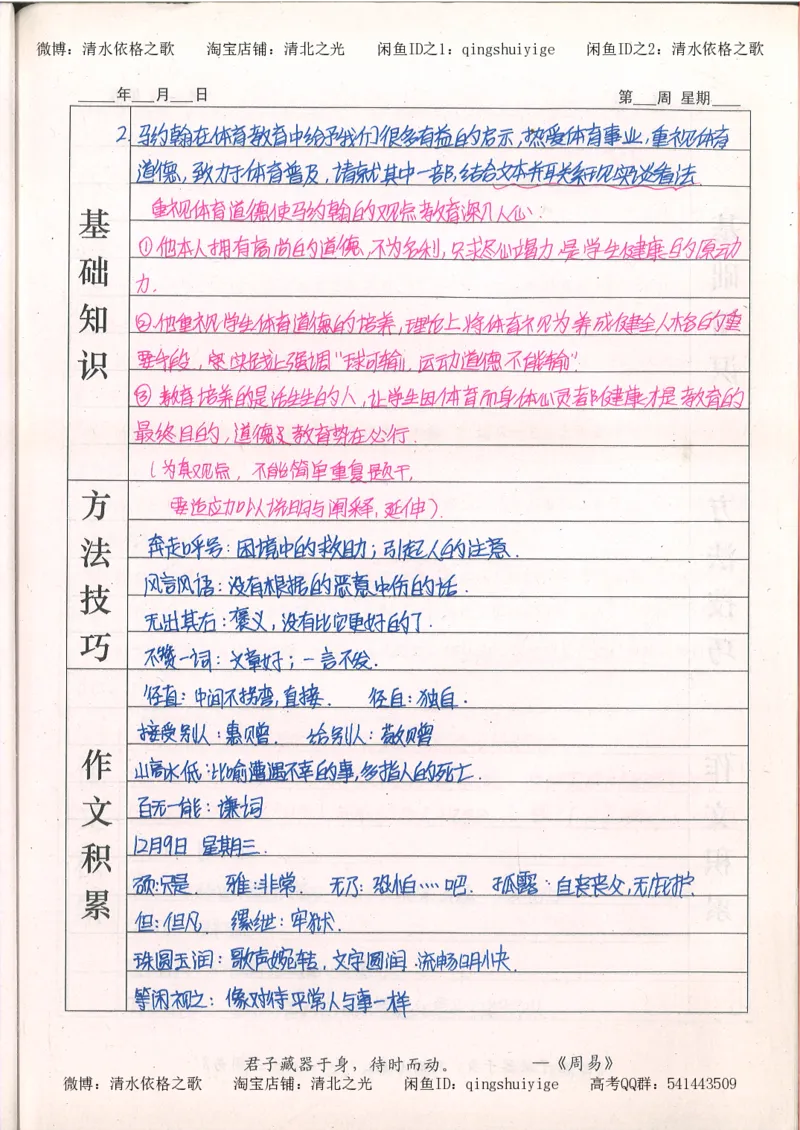 微博：清水依格之歌 淘宝店铺：清北之光 闲鱼ID之1：qingshuiyige 闲鱼ID之2：清水依格之歌
____年___月___日 第___周 星期____
基础知识
2. 马约翰在体育教育中给予我们很多有益的启示，热爱体育事业，重视体育
道德，致力于体育普及，请就其中一部，结合文本并联系现实谈看法.
重视体育道德使马约翰的观点教育深入人心：
①他本人拥有高尚的道德，不为名利，只求尽心竭力 是学生健康的原动
力.
②他重视学生体育道德的培养，理论上将体育视为养成健全人格的重
要手段，实践上强调“球可输，运动道德不能输”.
③ 教育培养的是活生生的人，让学生因体育而身体心灵都健康才是教育的
最终目的，道德教育势在必行.
(为其观点，不能简单重复题干，
要适应加以说明与阐释，延伸).
方法技巧
奔走呼号：困境中的救助；引起人的注意.
风言风语：没有根据的恶意中伤的话.
无出其右：褒义，没有比它更好的了.
不赞一词：文章好；一言不发.
作文积累
径直：中间不拐弯，直接. 径自：独自.
接受别人：惠赠. 给别人：敬赠
山高水低：比喻遭遇不幸的事，多指人的死亡.
百无一能：谦词
12月9日 星期三.
顾：只是. 雅：非常. 无乃：恐怕……吧. 孤露：自丧丧父，无庇护.
但：但凡 缧绁：牢狱.
珠圆玉润：歌声婉转，文字圆润 流畅明快.
等闲视之：像对待平常人与事一样
君子藏器于身，待时而动。 —《周易》
微博：清水依格之歌 淘宝店铺：清北之光 闲鱼ID：qingshuiyige 高考QQ群：541443509